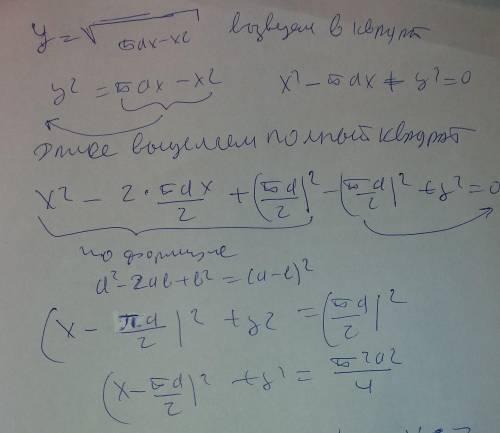 y = √(πax - x²) возведем в квадрат
y² = πax - x² x² - πax + y² = 0
далее выделяем полный квадрат
x² - 2 · πax/2 + (πa/2)² - (πa/2)² + y² = 0
по формуле
a² - 2ab + b² = (a - b)²
(x - πa/2)² + y² = (πa/2)²
(x - πa/2)² + y² = π²a²/4